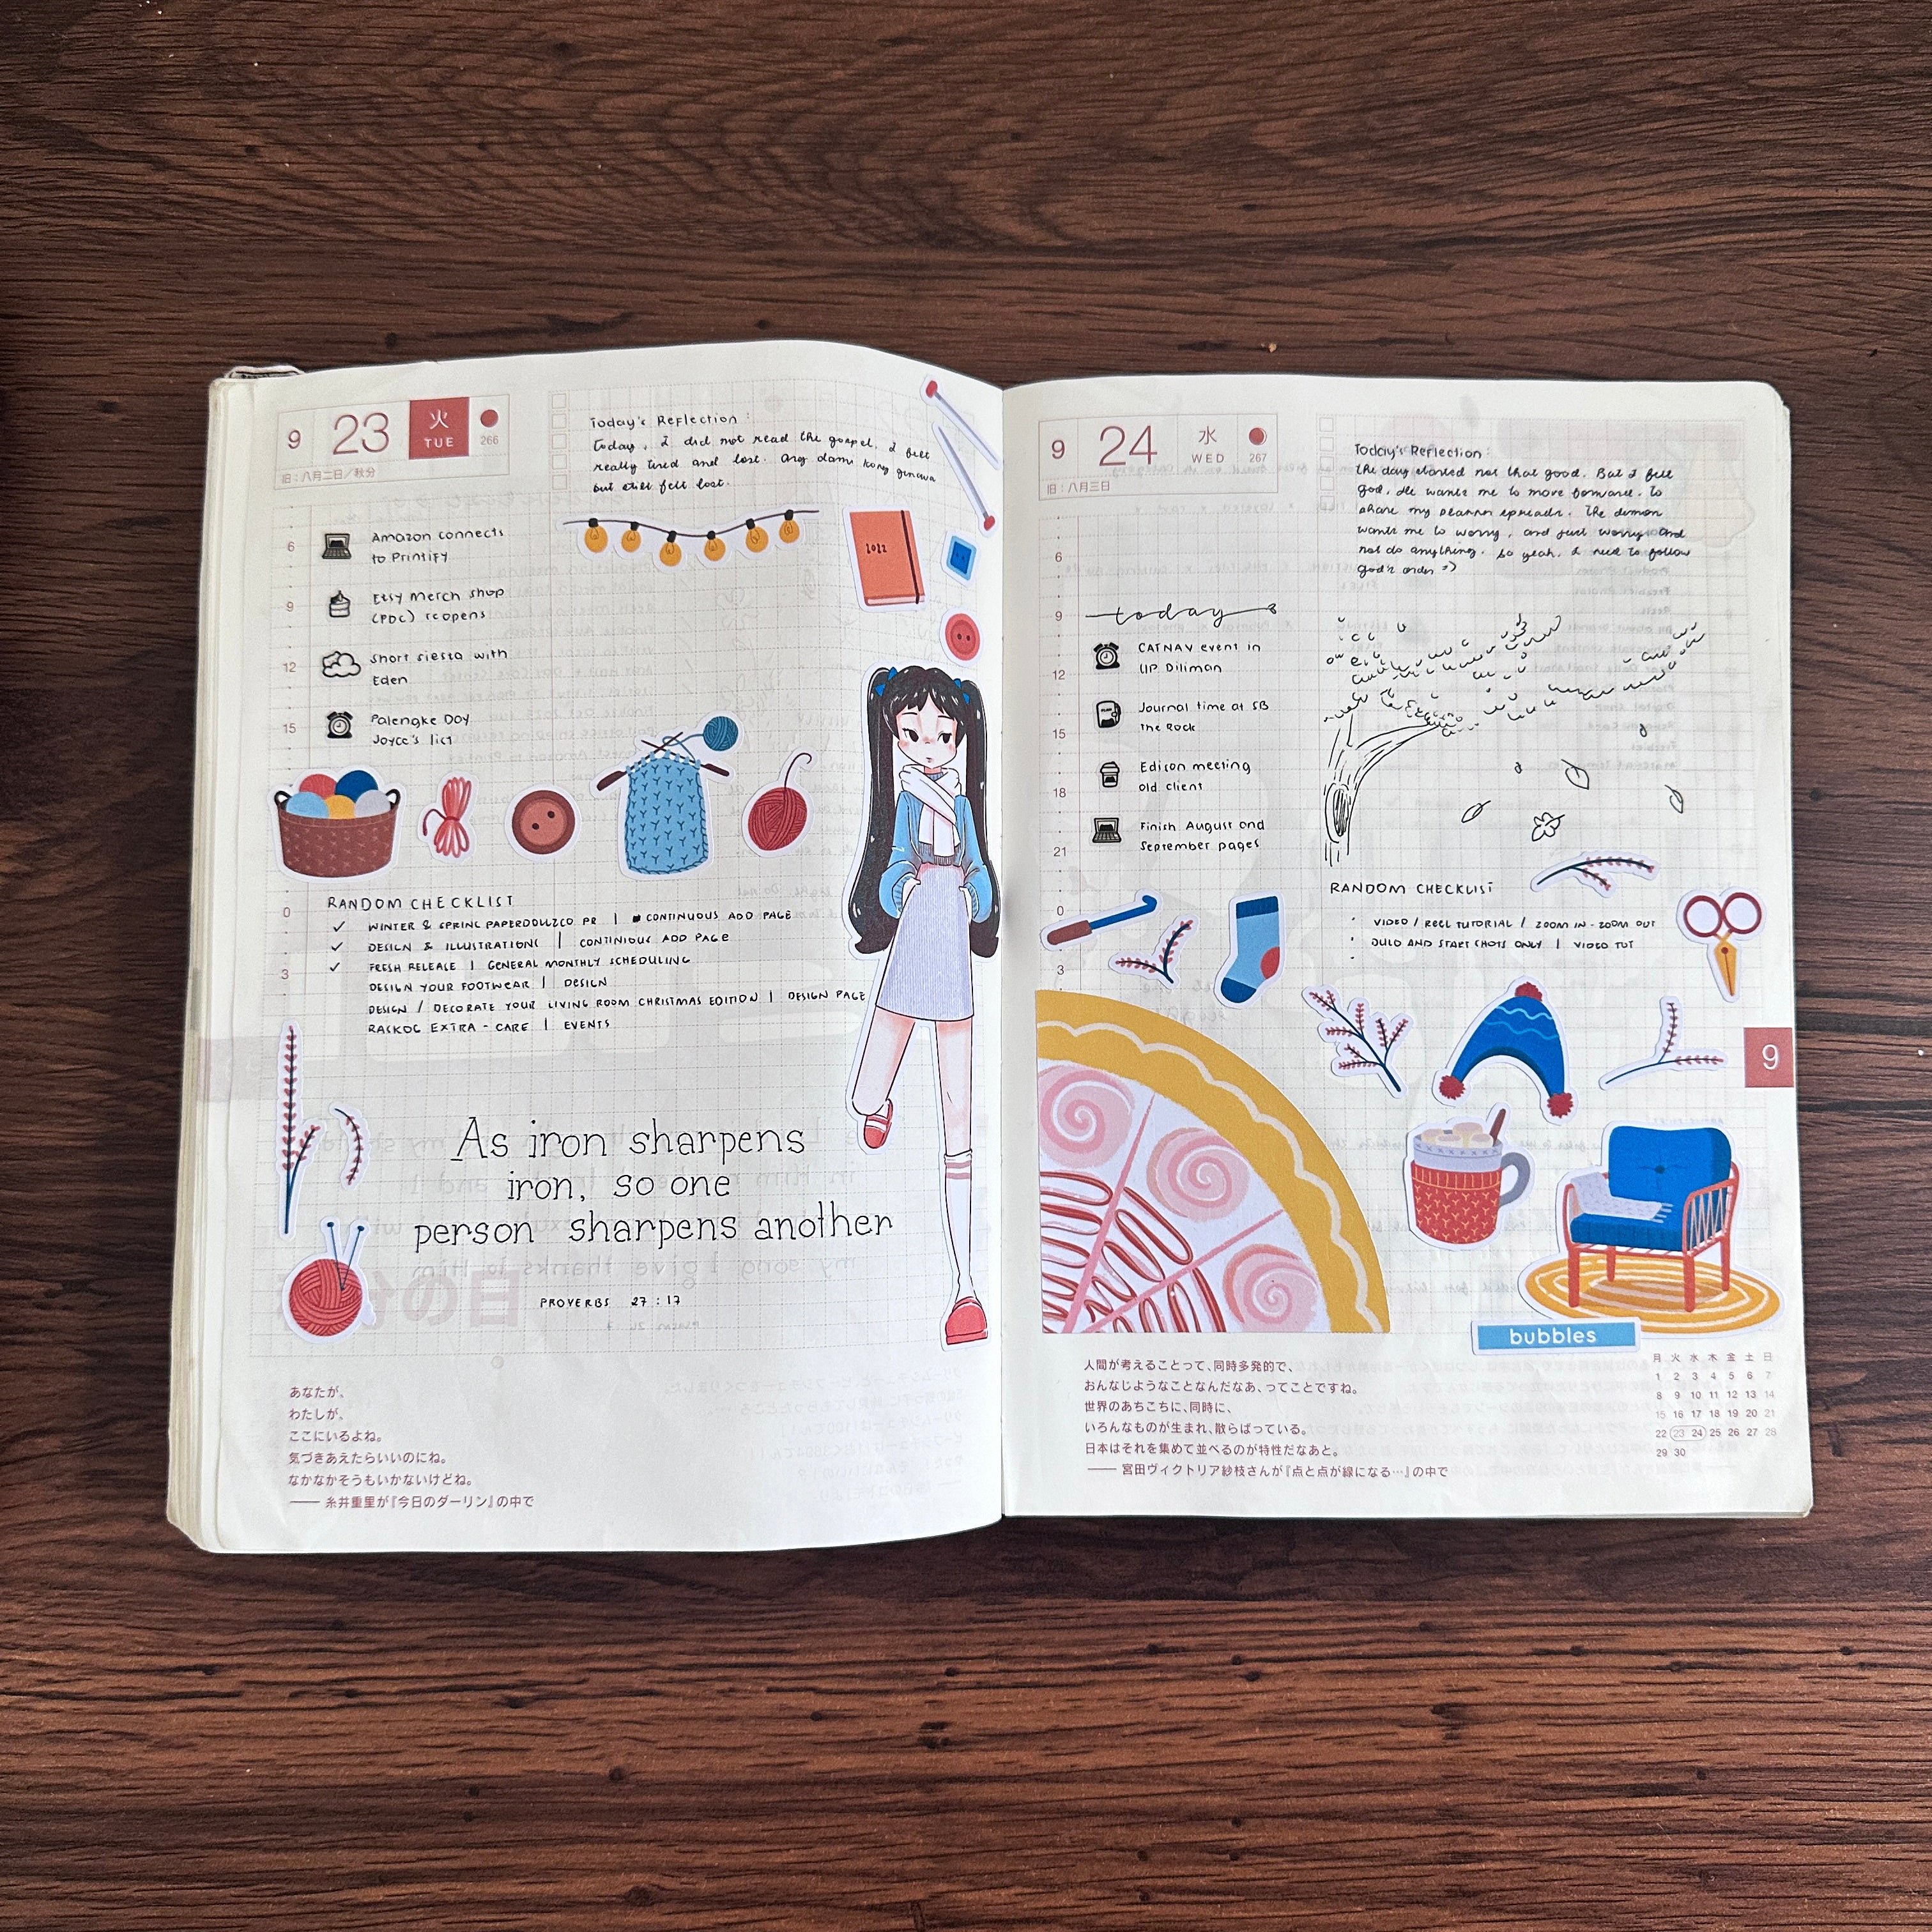 9 23 火 TUE 266
旧:八月二日/秋分
Today's Reflection:
Today, I did not read the gospel. I felt
really tired and lost. Ang dami kong ginawa
but still felt lost.
6
Amazon connects
to Printify
9
Etsy merch shop
(PDC) reopens
12
Short siesta with
Eden
15
Palengke Day
Joyce's list
0
RANDOM CHECKLIST
✓ WINTER & SPRING PAPERDOLLZCO PR | CONTINUOUS ADD PAGE
✓ DESIGN & ILLUSTRATIONS | CONTINIOUS ADD PAGE
✓ FRESH RELEASE | GENERAL MONTHLY SCHEDULING
3
DESIGN YOUR FOOTWEAR | DESIGN
DESIGN / DECORATE YOUR LIVING ROOM CHRISTMAS EDITION | DESIGN PAGE
RASKOG EXTRA - CARE | EVENTS
As iron sharpens
iron, so one
person sharpens another
PROVERBS 27:17
あなたが、
わたしが、
ここにいるよね。
気づきあえたらいいのにね。
なかなかそうもいかないけどね。
—— 糸井重里が『今日のダーリン』の中で
9 24 水 WED 267
旧:八月三日
Today's Reflection:
The day started not that good. But I felt
God, He wants me to move forward. To
share my planner spreads. The demon
wants me to worry, and just worry and
not do anything. So yeah, I need to follow
God's order =)
6
9
today
CATNAV event in
UP Diliman
12
Journal time at SB
The Rock
15
Edison meeting
old client
18
Finish August and
September pages
21
0
RANDOM CHECKLIST
VIDEO / REEL TUTORIAL / ZOOM IN - ZOOM OUT
AND START SHOTS ONLY | VIDEO TUT
3
9
bubbles
人間が考えることって、同時多発的で、
おんなじようなことなんだなあ、ってことですね。
世界のあちこちに、同時に、
いろんなものが生まれ、散らばっている。
日本はそれを集めて並べるのが特性だなあと。
—— 宮田ヴィクトリア紗枝さんが『点と点が線になる…』の中で
月 火 水 木 金 土 日
1 2 3 4 5 6 7
8 9 10 11 12 13 14
15 16 17 18 19 20 21
22 23 24 25 26 27 28
29 30